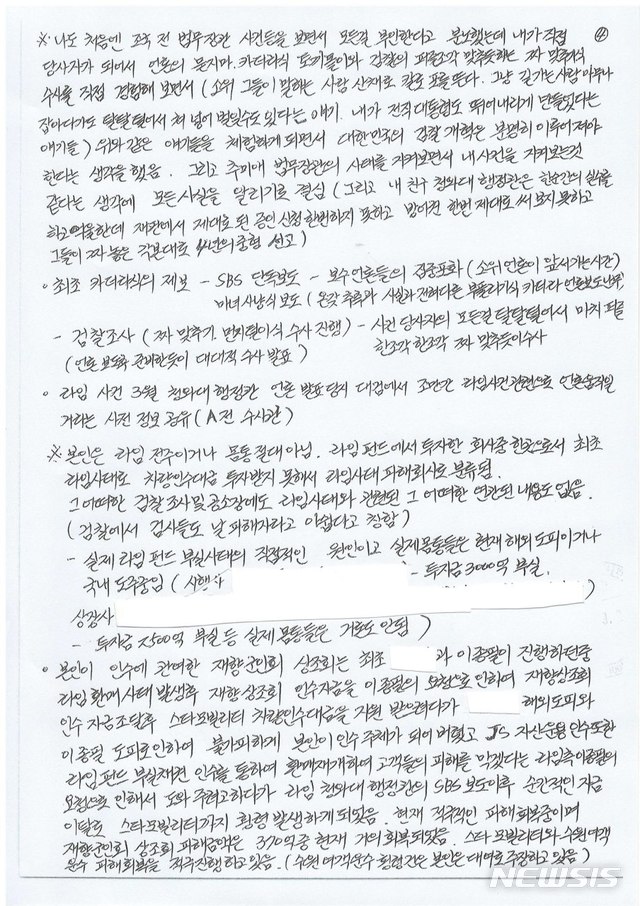 ④
※ 나도 처음엔 조국 전 법무장관 사건들을 보면서 모든걸 부인한다고 분노했는데 내가 직접
당사자가 되어서 언론의 묻지마. 카더라식 토끼몰이와 검찰의 퍼즐조각 맞추듯하는 짜 맞추기식
수사를 직접 경험해 보면서 (소위 그들이 말하는 사람 산채로 칼로 포를 뜬다. 그냥 길가는사람 아무나
잡아다가도 탈탈 털어서 쳐 넣어 버릴수도 있다는 얘기. 내가 전직대통령도 뛰어내리게 만들었다는
얘기들) 위와 같은 얘기들을 체험하게 되면서 대한민국의 검찰 개혁은 분명히 이루어져야
한다는 생각을 했음. 그리고 추미애 법무장관의 사태를 지켜보면서 내 사건을 지켜보는것
같다는 생각에 모든사실을 알리기로 결심 (그리고 내 친구 청와대 행정관은 한순간의 실수를
하고 억울한데 재판에서 제대로 된 증인 신청 한번하지 못하고 방어권 한번 제대로 써 보지 못하고
그들이 짜 놓은 각본대로 4년의 중형 선고)
◦ 최초 카더라식의 제보 - SBS 단독보도 - 보수언론들의 집중포화 (소위 언론이 앞서가는 시간)
마녀 사냥식 보도 (온갖 추측과 사실과 전혀다른 부풀리기식 카더라 언론보도난무)
- 검찰조사 (짜 맞추기. 먼지털이식 수사 진행) - 사건 당사자의 모든걸 탈탈털어서 마치 퍼즐
(언론 보도후 준비한듯이 대대적 수사 발표) 한조각 한조각 짜 맞추듯이수사
◦ 라임 사건 3월 청와대 행정관 언론 발표당시 대검에서 조만간 라임사건관련으로 언론 움직일
거라는 사전 정보 공유 (A전 수사관)
※ 본인은 라임 전주이거나 몸통 절대 아님. 라임 펀드에서 투자한 회사중 한곳으로서 최초
라임사태로 차량인수대금 투자받지 못해서 라임사태 피해회사로 분류됨.
그 어떠한 검찰 조사 및 공소장에도 라임사태와 관련된 그 어떠한 연관된 내용도 없음.
(검찰에서 검사들도 날 피해자라고 아쉽다고 칭함)
- 실제 라임 펀드 부실사태의 직접적인 원인이고 실제몸통들은 현재 해외 도피이거나
국내 도주중임 (시행사 - 투자금 3000억 부실.
상장사 )
- 투자금 2500억 부실 등 실제 몸통들은 거론도 안됨)
◦ 본인이 인수에 관여한 재향군인회 상조회는 최초 과 이종필이 진행하던중
라임 환매 사태 발생후 재향 상조회 인수자금을 이종필의 요청으로 인하여 재향상조회
인수 자금조달후 스타모빌리티 차량인수대금을 지원 받으려다가 해외도피와
이종필 도피로 인하여 불가피하게 본인이 인수 주체가 되어 버렸고 JS 자산운용 인수또한
라임 펀드 부실채권 인수를 통하여 환매재개하여 고객들의 피해를 막겠다는 라임측 이종필의
요청으로 인해서 도와주려고하다가 라임 청와대 행정관의 SBS 보도이후 순간적인 자금
이탈로 스타모빌리티까지 횡령 발생하게 되었음. 현재 적극적인 피해회복중이며
재향군인회 상조회 피해금액은 370억중 현재 거의 회복되었음. 스타모빌리티와 수원여객
운수 피해회복을 적극진행하고 있음. (수원여객운수 횡령건은 본인은 대여로 주장하고 있음)
NEWSIS